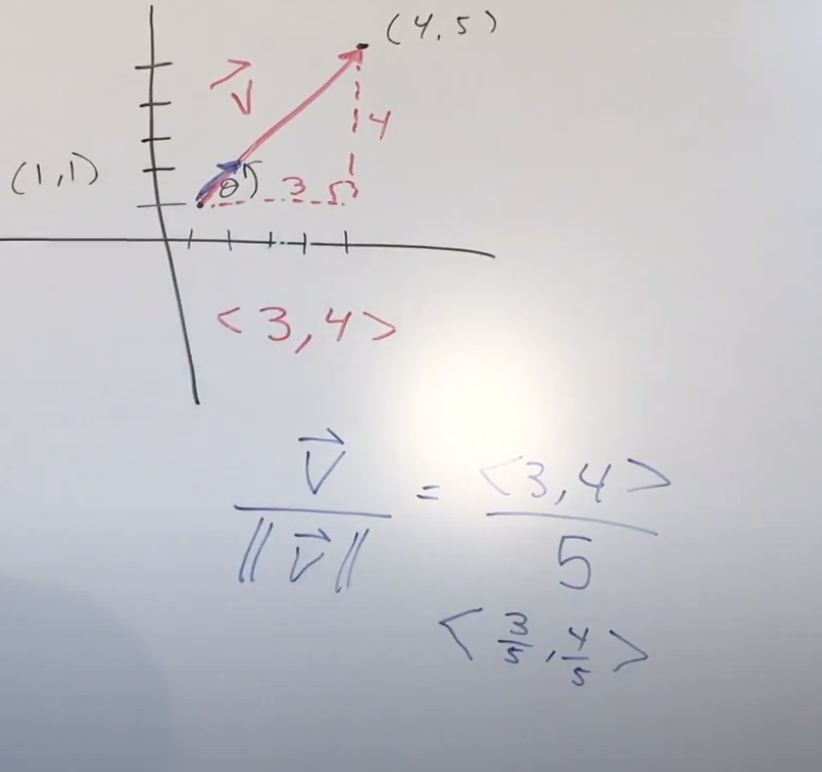 (4,5)
v⃗
4
(1,1)
θ
3
<3,4>
v⃗ / ||v⃗|| = <3,4> / 5
<3/5, 4/5>